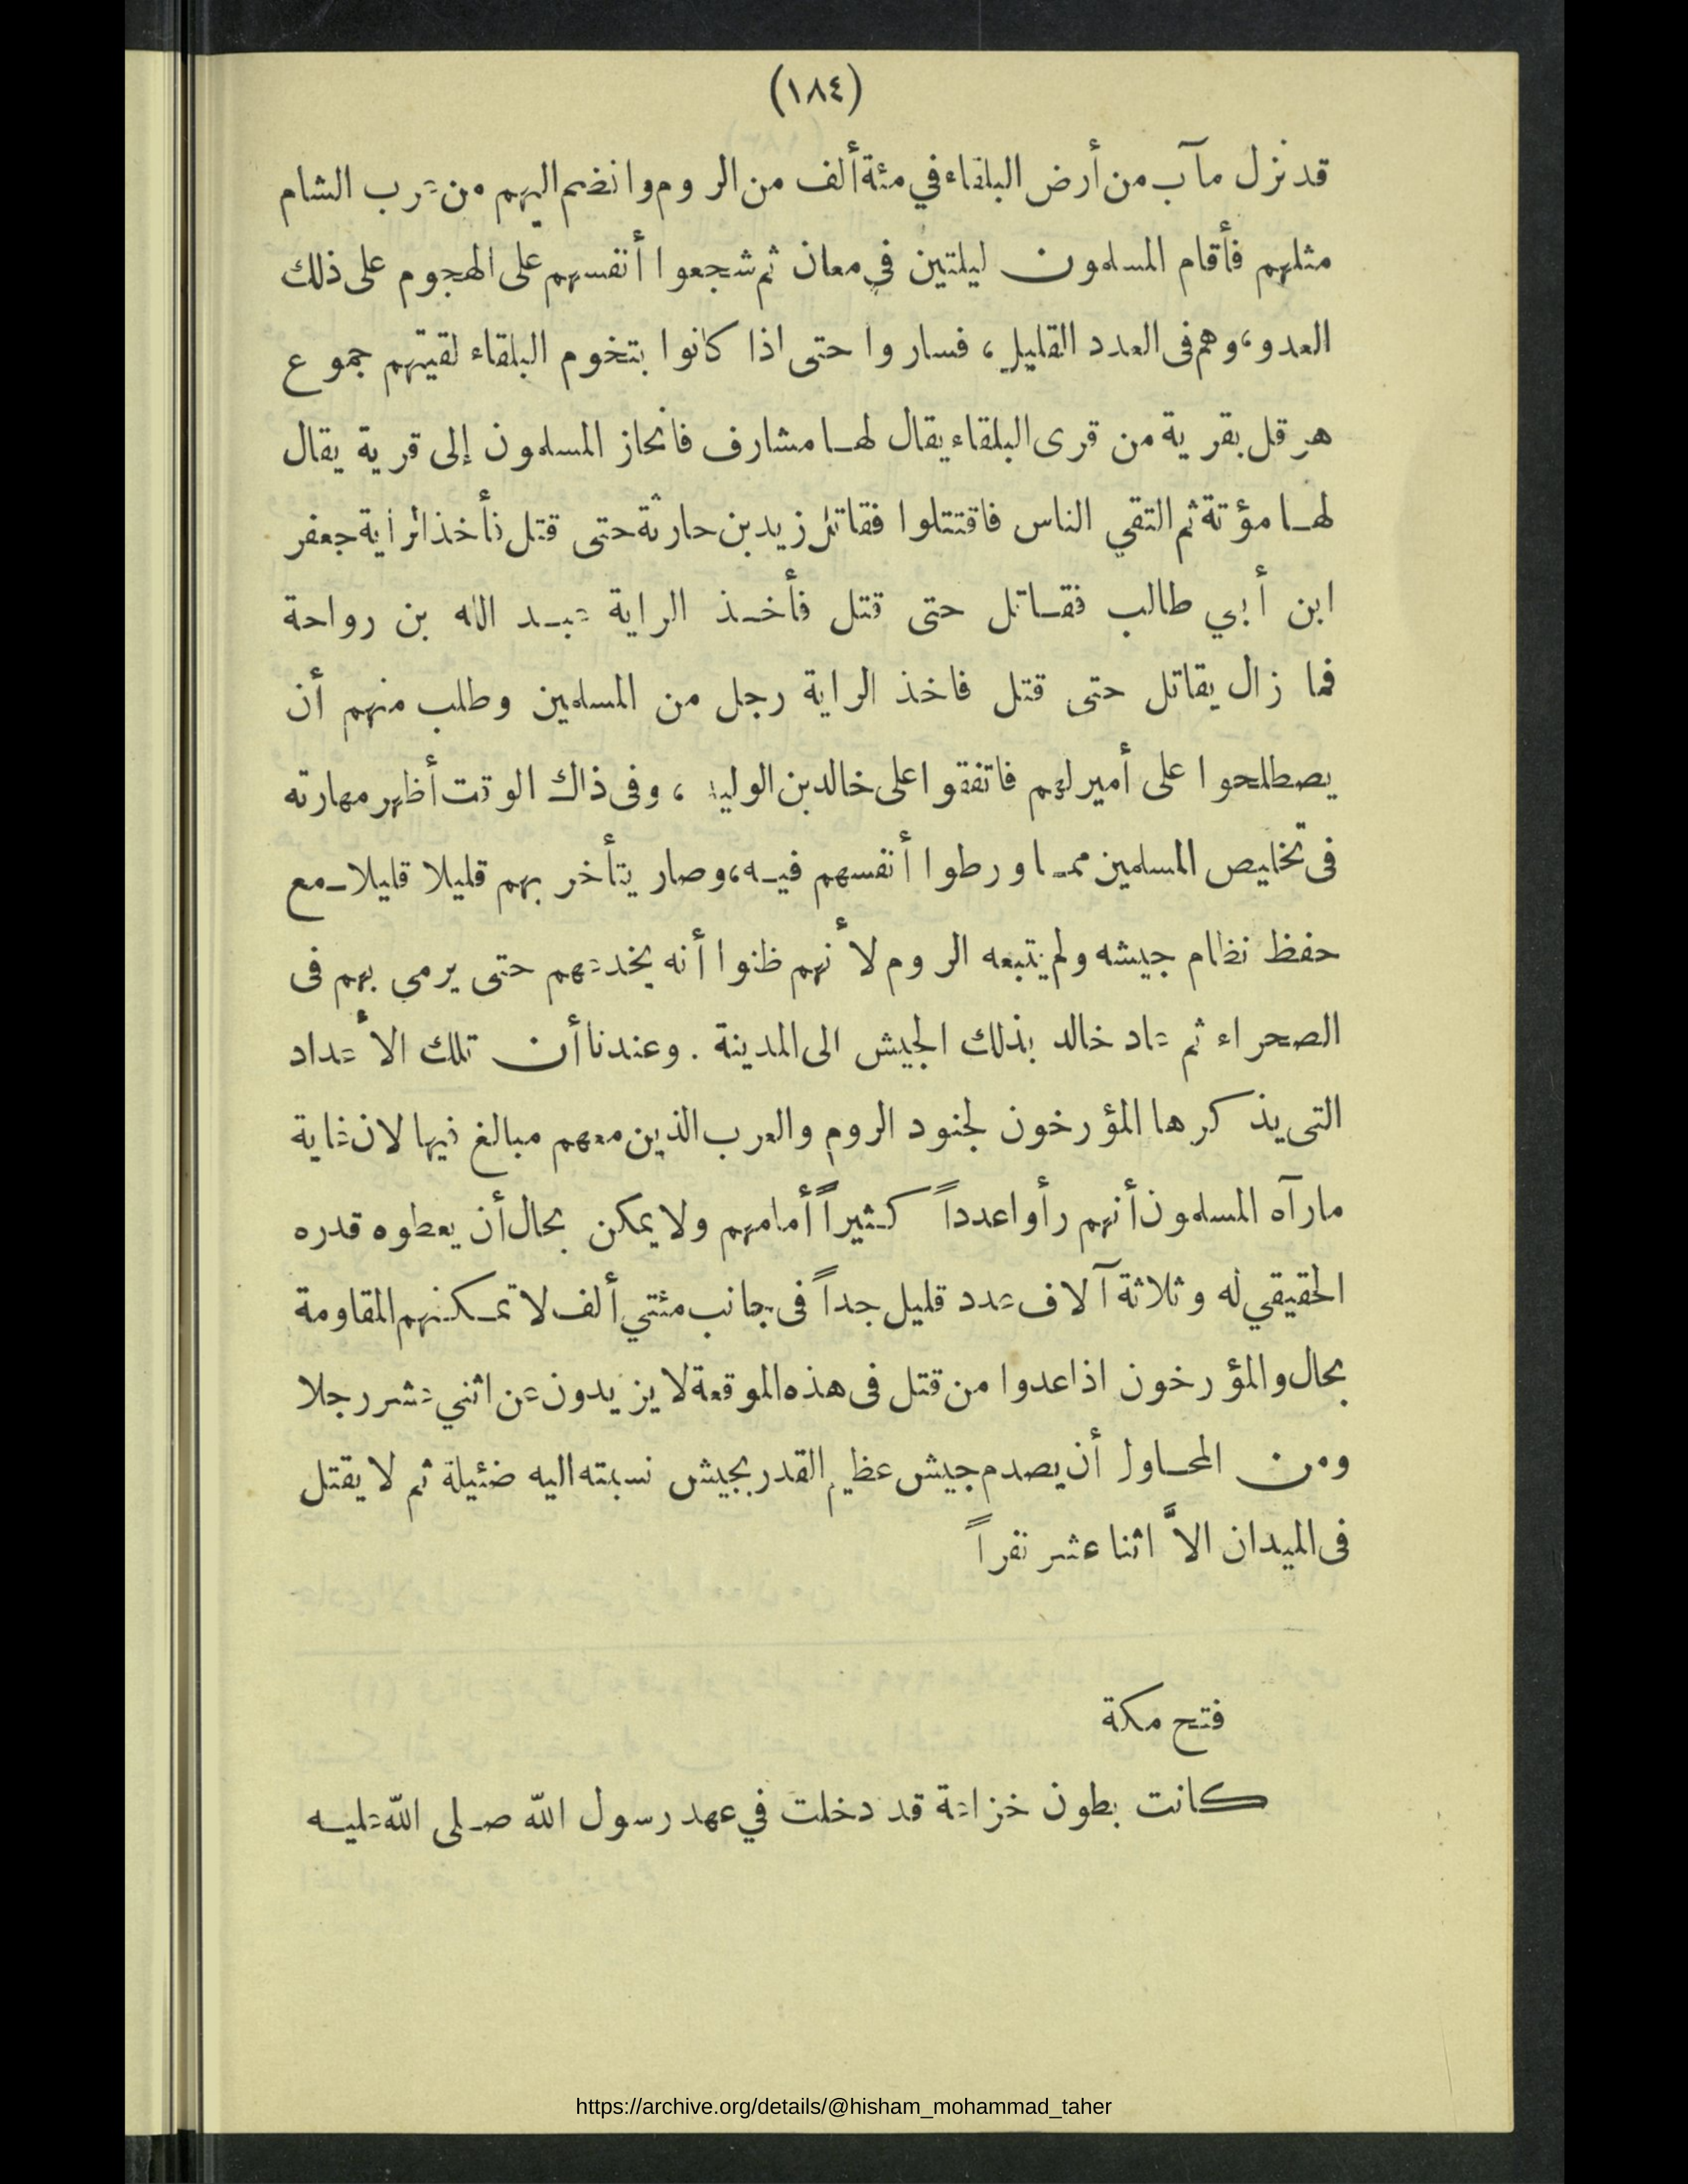 (١٨٤)
قد نزل مآب من أرض البلقاء في مئة ألف من الروم وانضم اليهم من عرب الشام
مثلهم فأقام المسلمون ليلتين في معان ثم شجعوا أنفسهم على الهجوم على ذلك
العدو، وهم فى العدد القليل، فساروا حتى اذا كانوا بتخوم البلقاء لقيتهم جموع
هرقل بقرية من قرى البلقاء يقال لها مشارف فانحاز المسلمون إلى قرية يقال
لها مؤتة ثم التقي الناس فاقتتلوا فقاتل زيد بن حارثة حتى قتل فأخذ الراية جعفر
ابن أبي طالب فقاتل حتى قتل فأخذ الراية عبد الله بن رواحة
فما زال يقاتل حتى قتل فاخذ الراية رجل من المسلمين وطلب منهم أن
يصطلحوا على أمير لهم فاتفقوا على خالد بن الوليد، وفى ذاك الوقت أظهر مهارته
فى تخليص المسلمين مما ورطوا أنفسهم فيه، وصار يتأخر بهم قليلا قليلا مع
حفظ نظام جيشه ولم يتبعه الروم لأنهم ظنوا أنه يخدعهم حتى يرمي بهم فى
الصحراء ثم عاد خالد بذلك الجيش الى المدينة. وعندنا أن تلك الأعداد
التى يذكرها المؤرخون لجنود الروم والعرب الذين معهم مبالغ فيها لان غاية
مارآه المسلمون أنهم رأوا عدداً كثيراً أمامهم ولا يمكن بحال أن يعطوه قدره
الحقيقي له وثلاثة آلاف عدد قليل جداً فى جانب مئتي ألف لا تمكنهم المقاومة
بحال والمؤرخون اذا عدوا من قتل فى هذه الموقعة لا يزيدون عن اثني عشر رجلا
ومن المحاول أن يصدم جيش عظيم القدر بجيش نسبته اليه ضئيلة ثم لا يقتل
فى الميدان الاَّ اثنا عشر نفراً
فتح مكة
كانت بطون خزاعة قد دخلت في عهد رسول الله صلى الله عليه
https://archive.org/details/@hisham_mohammad_taher